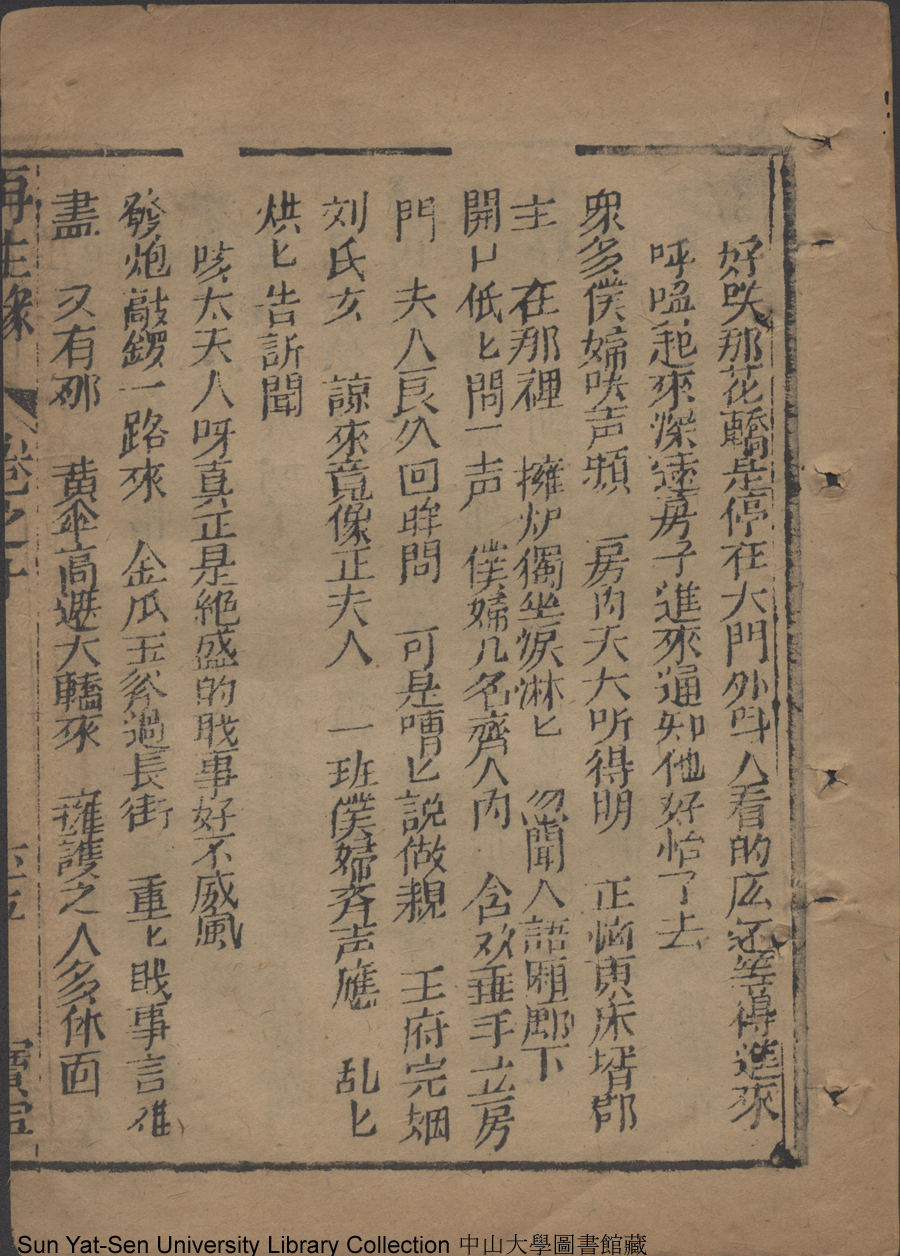 好呌那花轎是停在大門外呌人看的庅还等得進來
呼嗌起來深遠房子進來通知他好怡了去
眾多僕婦呌声頻　房內夭大听得明　正惱東床壻郡
主　在那裡　擁炉獨坐淚淋匕　忽聞人語廂廊下
開口低匕問一声　僕婦几名齊入內　含欢垂手立房
門　夫人良久回眸問　可是嘈匕説做親　王府完姻
刘氏女　諒來竟像正夫人　一班僕婦斉声應　乱匕
烘匕告訴聞
咳太夫人呀真正是絶盛的戝事好不威風
發炮敲鑼一路來　金瓜玉斧過長街　重匕戝事言难
盡　又有那　黄傘高遮大轎來　擁護之人多体面
再生緣　卷之十
Sun Yat-Sen University Library Collection 中山大學圖書館藏